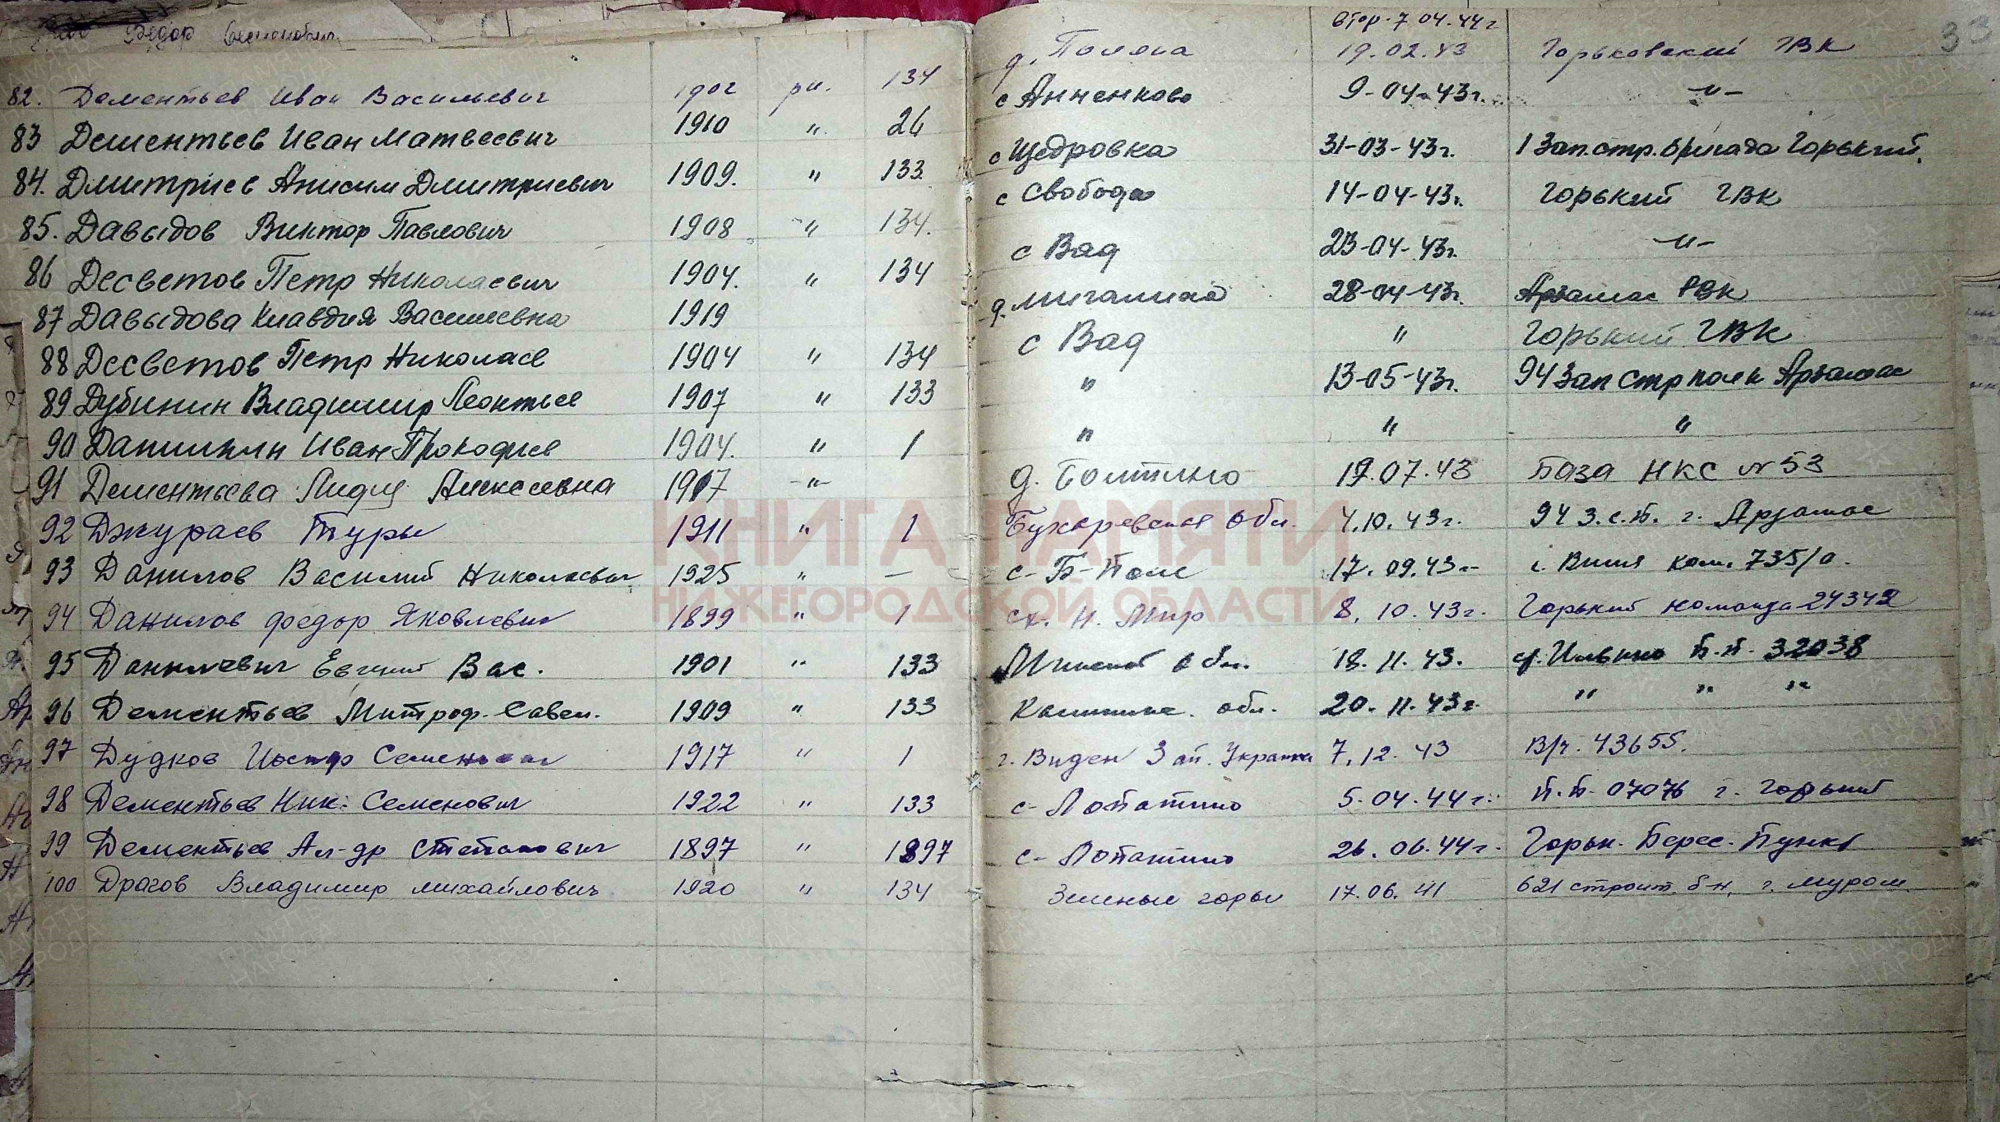 Федор Семенович
д. Полога втор. 7 04.44г 33
19.02.43 Горьковский ГВК
82. Дементьев Иван Васильевич ря. 134 с Анненково 9-04-43г. -"-
83 Дементьев Иван Матвеевич 1910 " 26 с Щедровка 31-03-43г. 1 Зап. стр. бригада Горький.
84. Дмитриев Анисим Дмитриевич 1909. " 133 с Свобода 14-04-43г. Горький ГВК
85. Давыдов Виктор Павлович 1908 " 134. с Вад 23-04-43г. -"-
86 Десветов Петр Николаевич 1904. " 134 д. 28-04-43г. Арзамас РВК
87 Давыдова Клавдия Васильевна 1919 с Вад " Горький ГВК
88 Десветов Петр Николаев 1904 " 134 " 13-05-43г. 94 Зап Стр полк Арзамас
89 Дубинин Владимир Леонтьев 1907 " 133 " " "
90 Данилкин Иван Прокофиев 1904. " 1 д. Болтино 19.07.43 База НКС №53
91 Дементьева Лидия Алексеевна 1917 -"-
92 Джураев Туры 1911 " 1 Бухаревская обл. 4.10.43г. 94 З.с.п. г. Арзамас
93 Данилов Василий Николаевич 1925 " — с-Б-Поле 17.09.43- ком. 735/0.
94 Данилов Федор Яковлевич 1899 " 1 Н. Мир 8.10.43г. Горький команда 24342
95 Данилевич Евгений Вас. 1901 " 133 Минской обл. 18.11.43. ст. Ильино П.П. 32038
96 Дементьев Митроф. Савел. 1909 " 133 Калининс. обл. 20.11.43г. " " "
97 Дудков Семенович 1917 " 1 г. Виден Зап. Украина 7.12.43 В/ч. 43655.
98 Дементьев Ник. Семенович 1922 " 133 с-Лопатино 5.04.44г. П.П. 07076 г. Горький
99 Дементьев Ал-др Степанович 1897 " 1897 с-Лопатино 26.06.44г. Горьк. Перес. Пункт
100 Драгов Владимир Михайлович 1920 " 134 Зеленые горы 17.06.41 621 строит. б-н. г. Муром.
КНИГА ПАМЯТИ
НИЖЕГОРОДСКОЙ ОБЛАСТИ